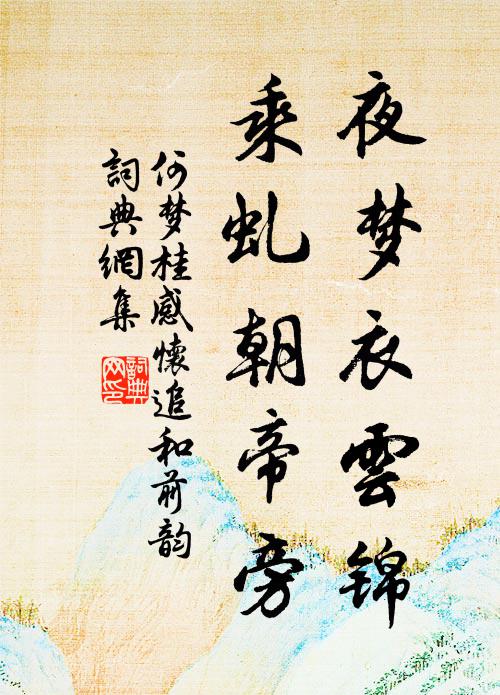 夜梦衣雲锦
乘虬朝帝旁
何梦桂感懷追和前韵
詞典網集
詞典网印